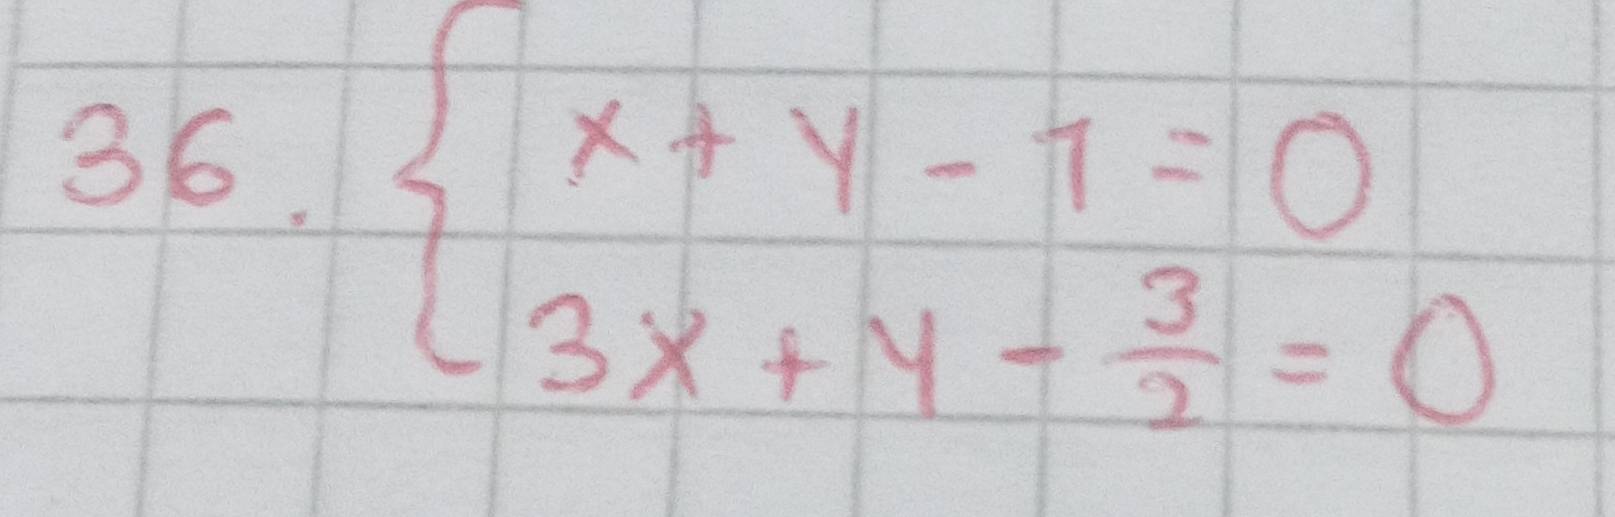 36. { x + y - 1 = 0
3x + y - 3/2 = 0